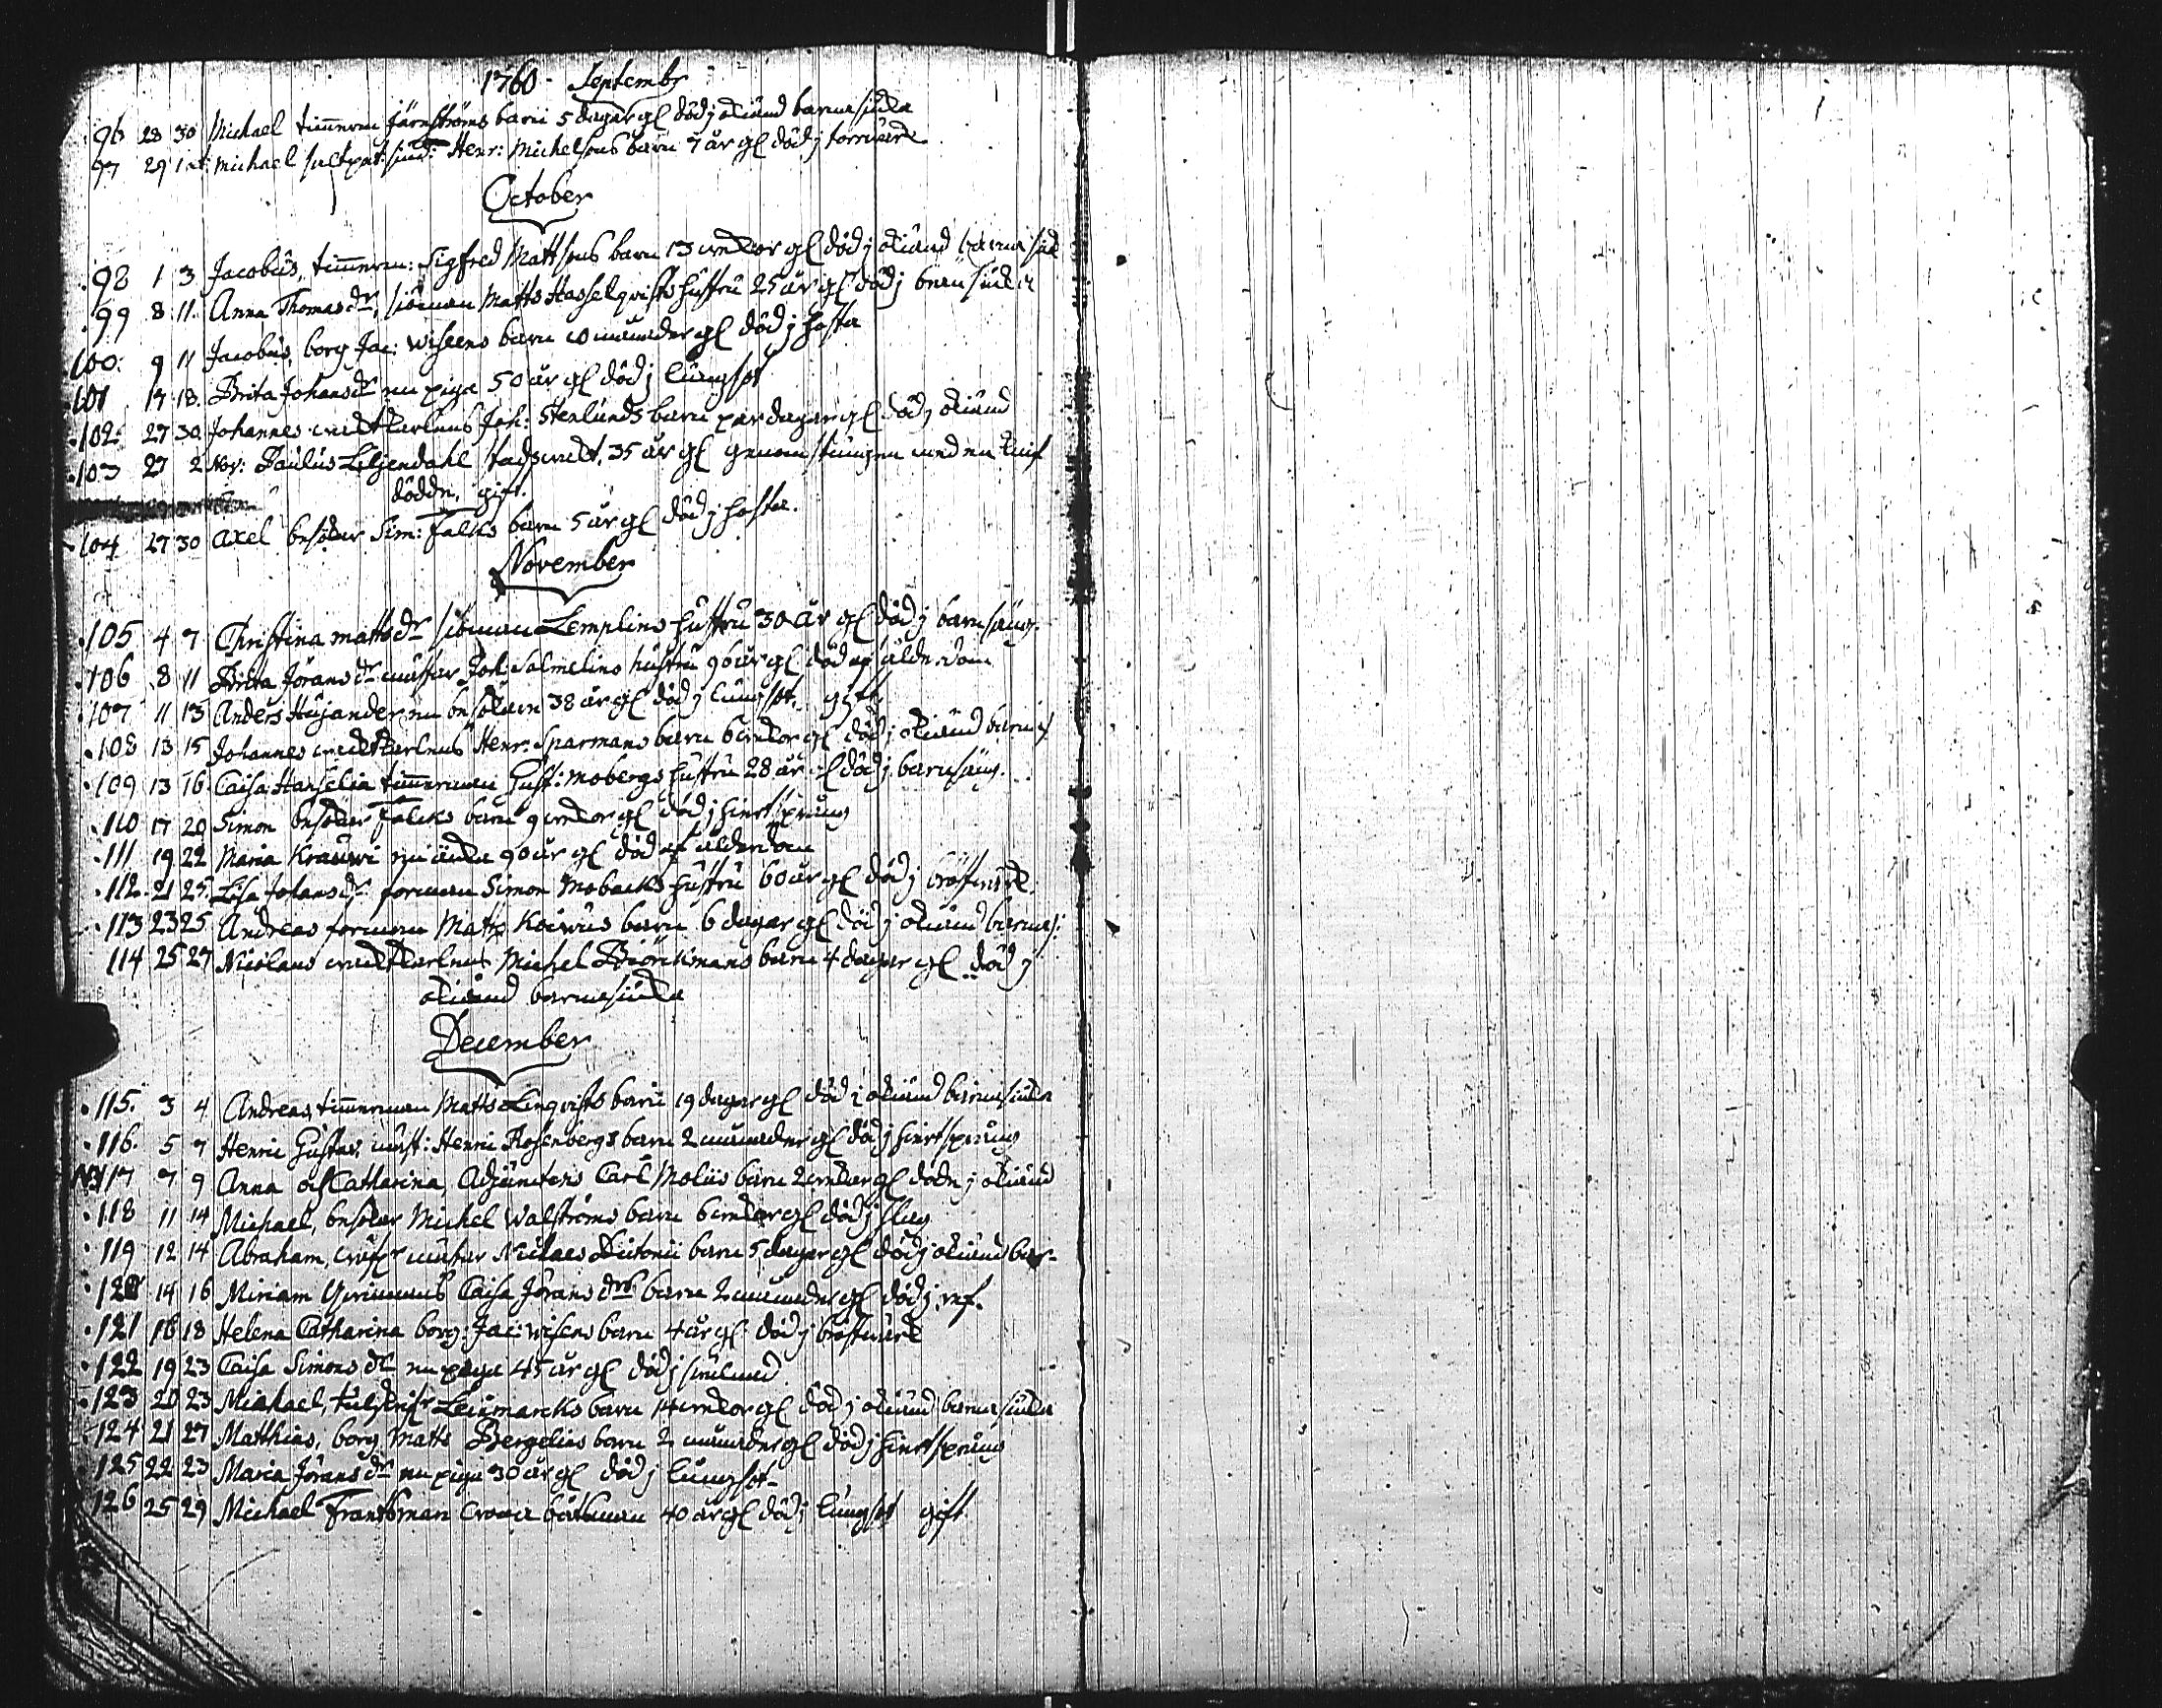 1760 - Septembr
96 28 30 Michael timerm Järnströms barn 5 dagar gl död j okiänd barnasiuka
97 29 1 Michael Henr: Michelsons barn 7 år gl död j torrwärk
October
98 1 3 Jacobus, timmerm: Sigfred Mattsons barn 13 weckor gl död j okiänd barna siuk
99 8 11 Anna Thomasdr, siöman Matts Hasselqvists hustru 25 år gl död j bränsiuka
100 9 11 Jacobus, borg Jac: Wisens barn 10 månader gl död j hosta
101 17 18 Brita Johansdr en piga 50 år gl död j lungsot
102 27 30 Johannes wacktkarlens Joh: Stenlunds barn par dagar gl död j okiänd
103 27 2 Nov: Paulus Liljendahl stadswakt, 35 år gl genomstungen med en knif
dödde, gift.
104 27 30 Axel besökar Sim: Falcks barn 5 år gl död j hosta.
November
105 4 7 Christina Mattsdr siöman Lemplins hustru 30 år gl död j barnsäng.
106 8 11 Brita Jöransdr mästar Joh: Salmelins hustru 96 år gl död af ålderdom
107 11 13 Anders Hujander en besökare 38 år gl död j lungsot. gift
108 13 15 Johannes wacktkarlens Henr: Sparmans barn 6 weckor gl död j okiänd barnas
109 13 16 Caisa Hanselia timmerman Gust: Mobergs hustru 28 år gl död j barnsäng.
110 17 20 Simon besökar Falcks barn 9 weckor gl död j hiertsprång
111 19 22 Maria Krauwi en änka 90 år gl död af ålderdom
112 21 25 Lisa Johansdr forman Simon Mobacks hustru 60 år gl död j bröstwärk.
113 23 25 Andreas forman Matts Koiwus barn 6 dagar gl död j okiänd barnas:
114 25 27 Nicolaus wacktkarlens Michel Biörckmans barn 4 dagar gl död j
okiänd barnasiuka
December
115. 3 4 Andreas, timmerman Matts Linqvists barn 19 dagar gl död i okiänd barnasiuka
116. 5 7 Henric Gustav, mäst: Henric Rosenbergs barn 2 månader gl död j hiertsprång
117 7 9 Anna och Catharina, Adjunctens Carl Molius barn 2 weckor gl döde j okiänd
118 11 14 Michael, besökar Michel Walströms barn 6 weckor gl död j slag
119 12 14 Abraham, mästar Niclaes barn 5 dagar gl död j okiänd bar-
120 14 16 Miriam Caisa Jöransdrs barn 2 månader gl död j ref.
121 16 18 Helena Catharina borg: Jac: Wisens barn 4 år gl död j bröstwärk
122 19 23 Caisa Simonsdr en piga 45 år gl död j
123 20 23 Michael, Leinmarcks barn 14 weckor gl död j okiänd barnasiuka
124 21 27 Matthias, borg Matts Bergelins barn 2 månader gl död j hiertsprång
125 22 23 Maria Jöransdr en piga 30 år gl död j lungsot-
126 25 29 Michael Frantsman Crono båtsman 40 år gl död j lungsot gift